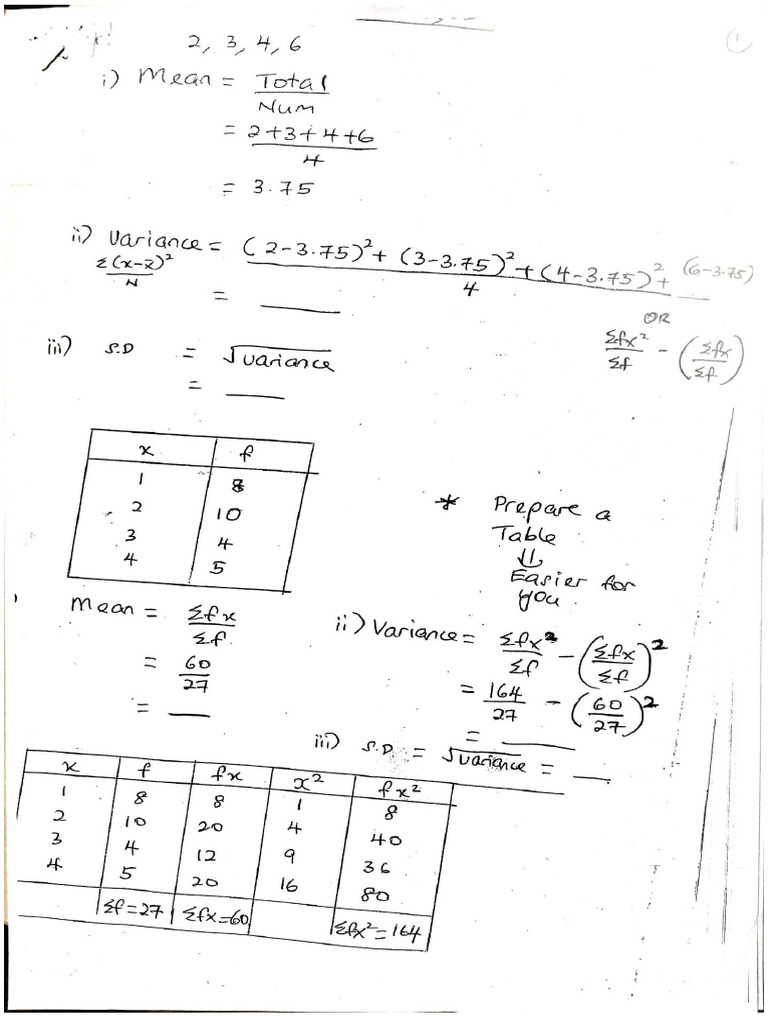 2, 3, 4, 6
i) Mean = Total
Num
= 2+3+4+6
4
= 3.75
ii) Variance = (2-3.75)² + (3-3.75)² + (4-3.75)² + (6-3.75)
4
Σ(x-x̄)²
N
= ____
OR
Σfx² - (Σfx)
Σf (Σf)
iii) S.D = √variance
= ____
x f
1 8
2 10
3 4
4 5
* Prepare a
Table
⇓
Easier for
you.
Mean = Σfx
Σf
= 60
27
= ___
ii) Variance = Σfx² - (Σfx)²
Σf (Σf)
= 164 - (60)²
27 (27)
= ____
iii) S.D = √variance = ___
x f fx x² fx²
1 8 8 1 8
2 10 20 4 40
3 4 12 9 36
4 5 20 16 80
Σf=27 Σfx=60 Σfx²=164